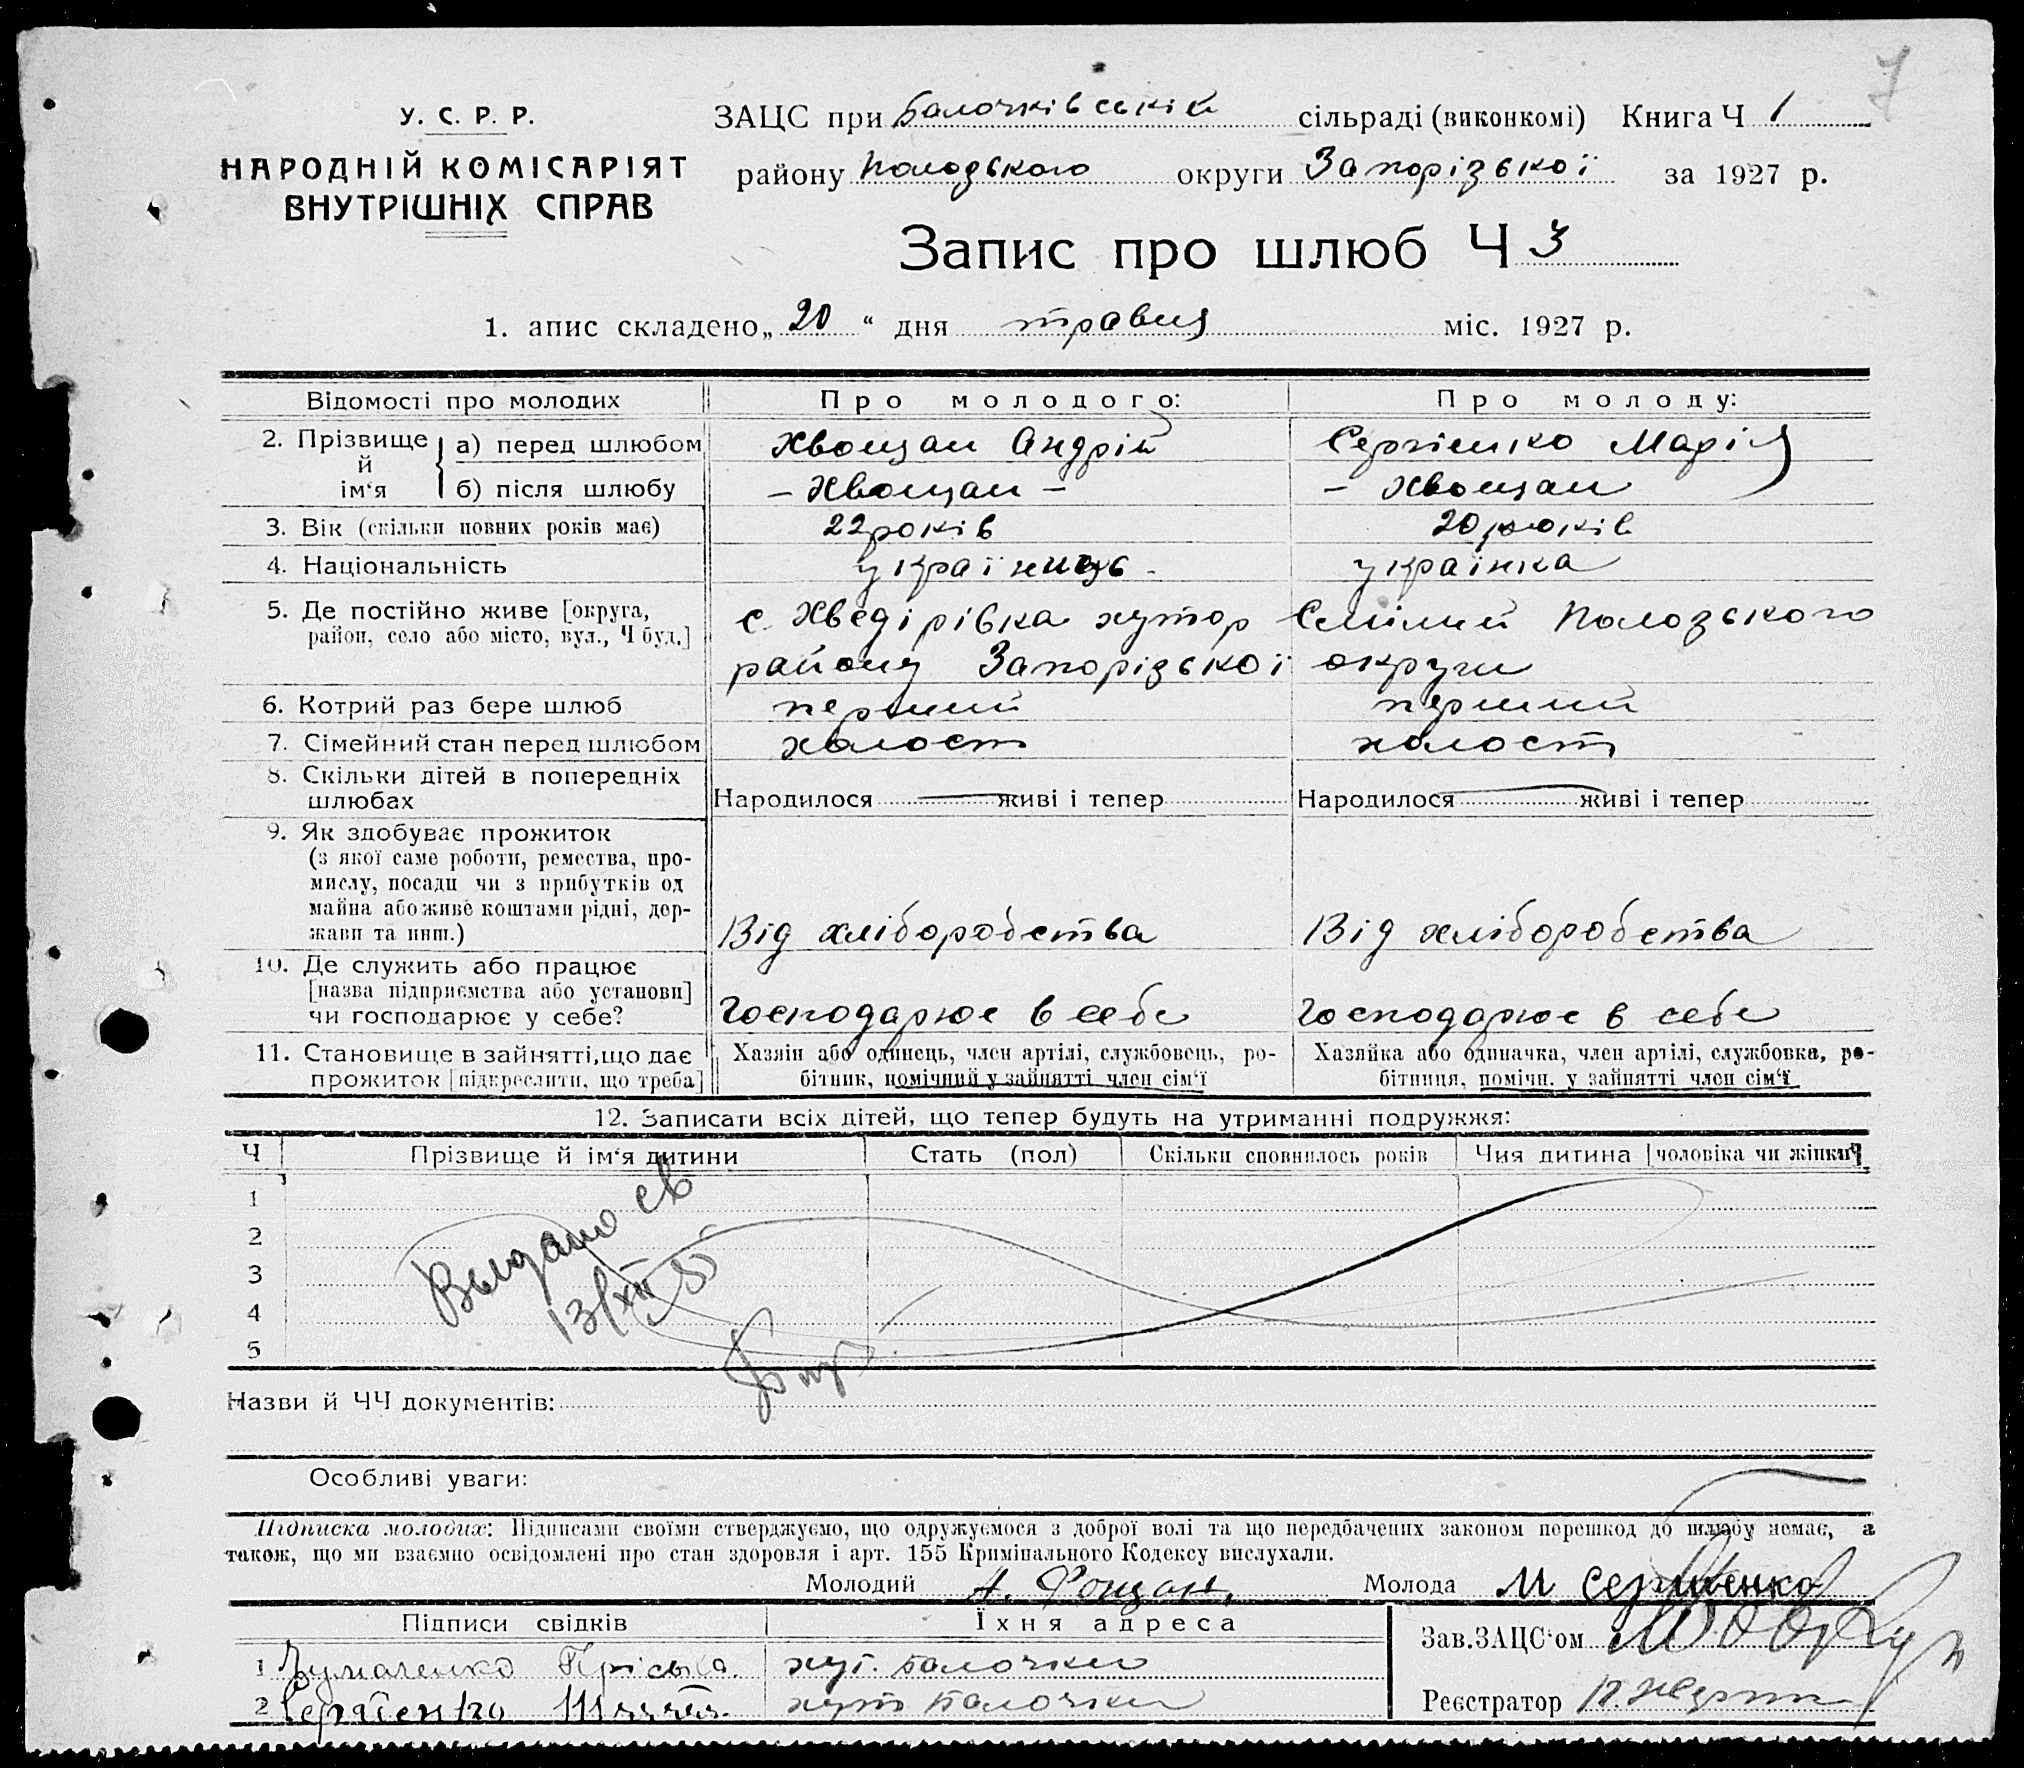 7
У. С. Р. Р.
НАРОДНІЙ КОМІСАРІЯТ
ВНУТРІШНІХ СПРАВ
ЗАЦС при Балочківській сільраді (виконкомі) Книга Ч 1
району Пологського округи Запорізької за 1927 р.
Запис про шлюб Ч 3
1. апис складено „20“ дня травня міс. 1927 р.
Відомості про молодих Про молодого: Про молоду:
2. Прізвище й ім‘я а) перед шлюбом Хвощан Андрій Сергієнко Марія
б) після шлюбу – Хвощан – – Хвощан
3. Вік (скільки повних років має) 22 років 20 років
4. Національність українець – українка
5. Де постійно живе [округа, район, село або місто, вул., Ч буд.] с. Хведірівка хутор Смілий Пологського
району Запорізької округи
6. Котрий раз бере шлюб перший перший
7. Сімейний стан перед шлюбом холост холост
8. Скільки дітей в попередніх шлюбах Народилося — живі і тепер Народилося — живі і тепер
9. Як здобуває прожиток
(з якої саме роботи, ремества, про-
мислу, посади чи з прибутків од
майна або живе коштами рідні, дер-
жави та инш.) Від хліборобства Від хліборобства
10. Де служить або працює
[назва підприємства або установи]
чи господарює у себе? Господарює в себе Господарює в себе
11. Становище в зайнятті, що дає
прожиток [підкреслити, що треба]
Хазяін або одинець, член артілі, службовець, ро-
бітник, помічний у зайнятті член сім‘ї
Хазяйка або одиначка, член артілі, службовка, ро-
бітниця, помічн. у зайнятті член сім‘ї
12. Записати всіх дітей, що тепер будуть на утриманні подружжя:
Ч Прізвище й ім‘я дитини Стать (пол) Скільки сповнилось років Чия дитина [чоловіка чи жінки]
1
2
3
4
5
Выдано св
13/XII
Назви й ЧЧ документів:
Особливі уваги:
Підписка молодих: Підписами своїми стверджуємо, що одружуємося з доброї волі та що передбачених законом перешкод до шлюбу немає, а
також, що ми взаємно освідомлені про стан здоровля і арт. 155 Кримінального Кодексу вислухали.
Молодий А. Фощан. Молода М Сергиенко
Підписи свідків Їхня адреса
Зав. ЗАЦС‘ом
1 Чумаченко Пріська хут. Балочки
2 Сергіенко хут Балочки
Реєстратор